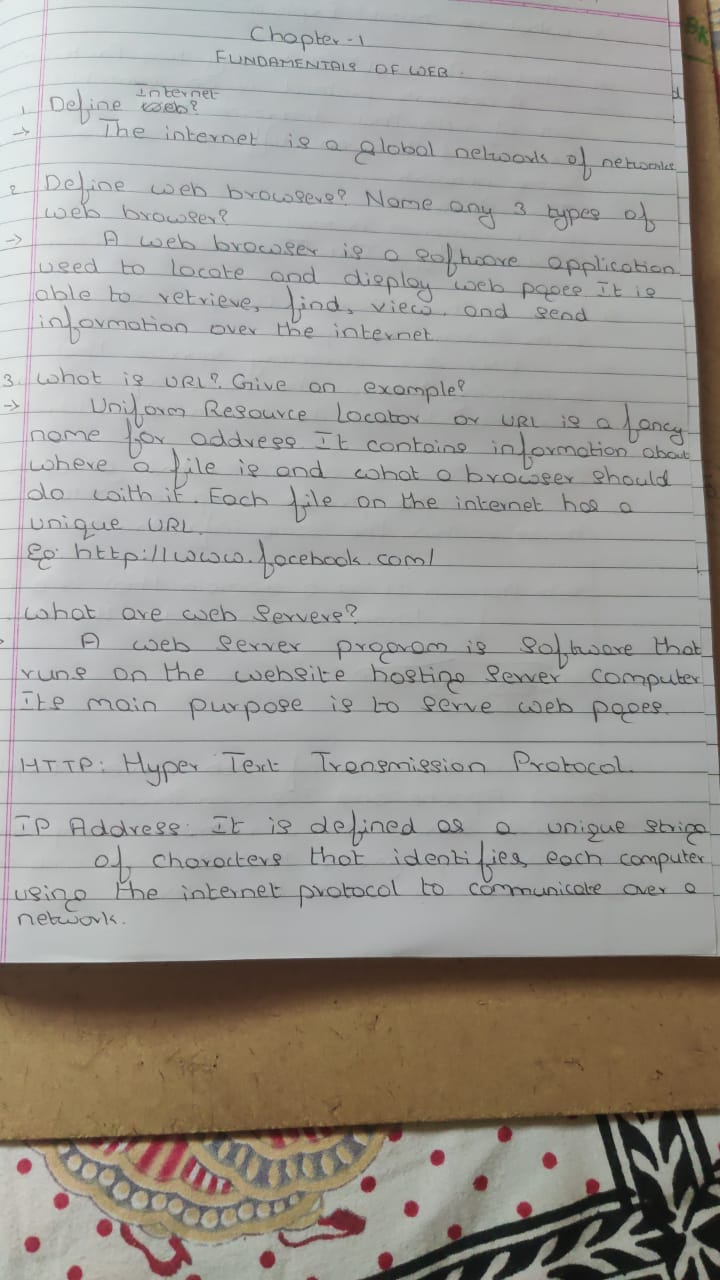 Chapter-1
FUNDAMENTALS OF WEB.
Internet
1. Define web?
→ The internet is a global network of networks
2. Define web browsers? Name any 3 types of
web browser?
→ A web browser is a software application
used to locate and display web pages It is
able to retrieve, find, view, and send
information over the internet.
3. What is URL? Give an example?
→ Uniform Resource Locator or URL is a fancy
name for address It contains information about
where a file is and what a browser should
do with it. Each file on the internet has a
unique URL.
Eg: http://www.facebook.com/
What are web servers?
A web server program is software that
runs on the website hosting server computer
Its main purpose is to serve web pages.
HTTP: Hyper Text Transmission Protocol.
IP Address: It is defined as a unique string
of characters that identifies each computer
using the internet protocol to communicate over a
network.